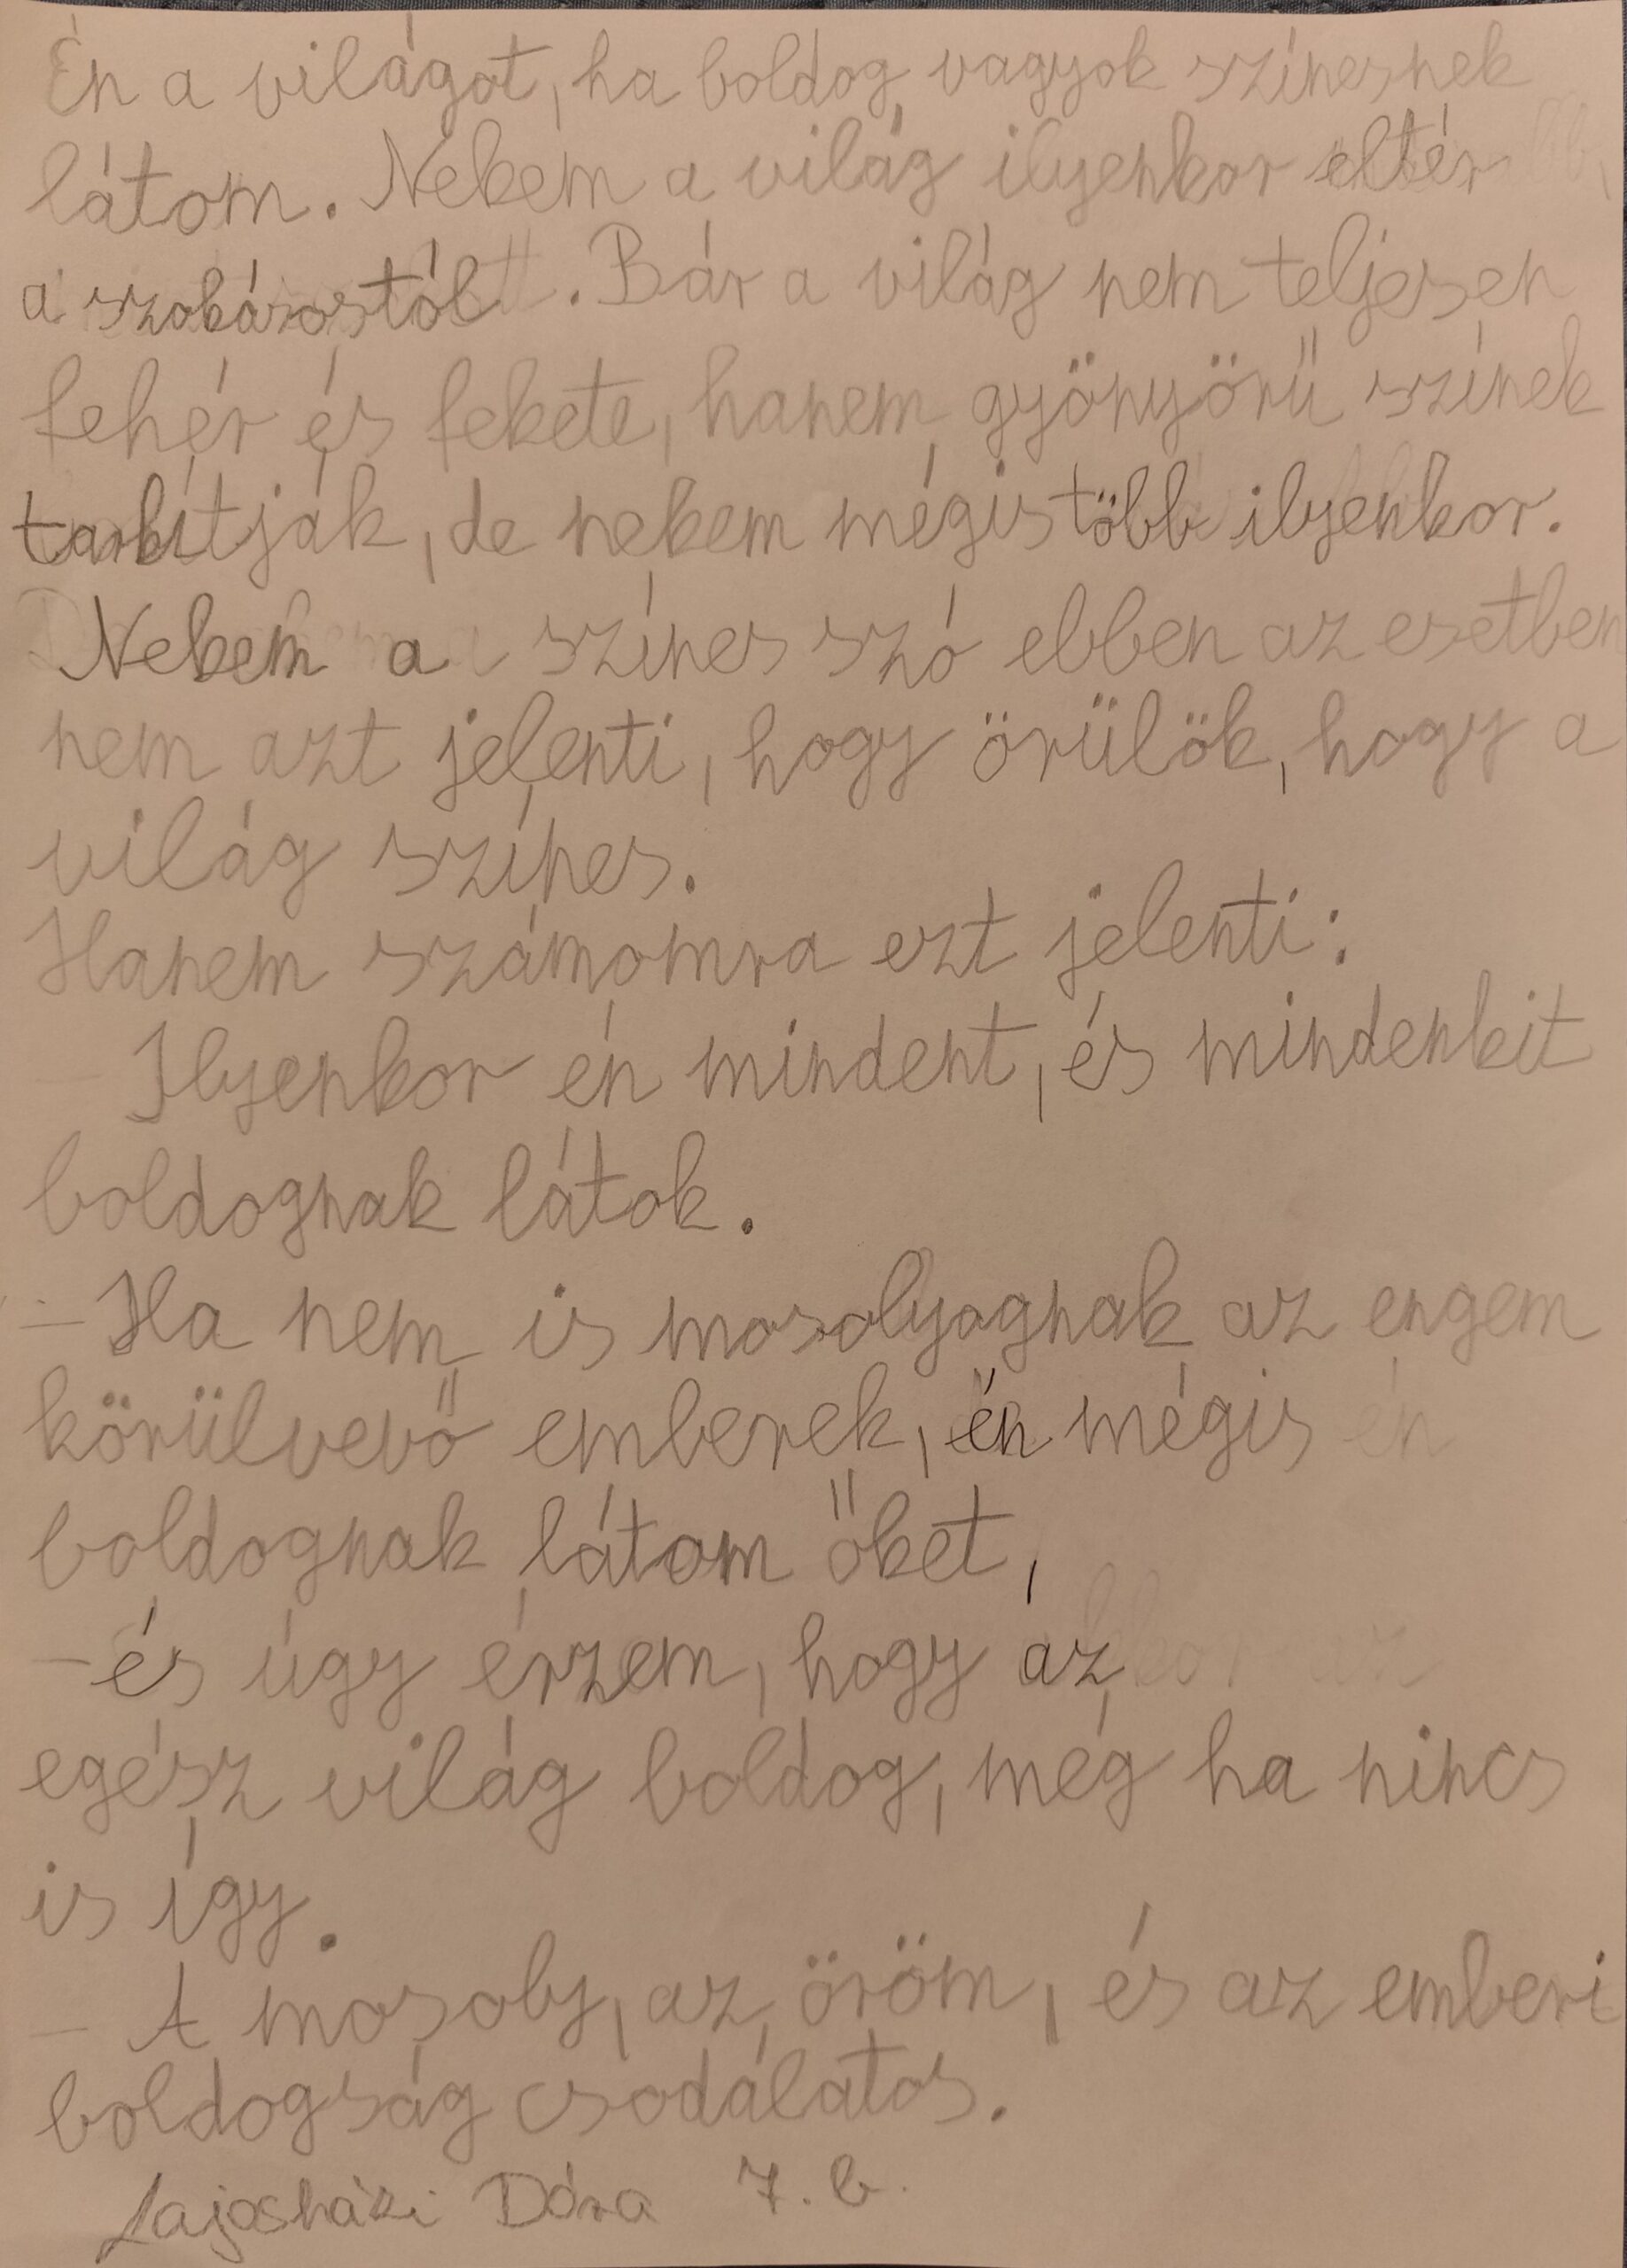 Én a világot, ha boldog vagyok színesnek
látom. Nekem a világ ilyenkor eltér
a szokásostól. Bár a világ nem teljesen
fehér és fekete, hanem gyönyörű színek
tarkítják, de nekem mégis több ilyenkor.
Nekem a színes szó ebben az esetben
nem azt jelenti, hogy örülök, hogy a
világ színes.
Hanem számomra ezt jelenti:
– Ilyenkor én mindent, és mindenkit
boldognak látok.
– Ha nem is mosolyognak az engem
körülvevő emberek, én mégis
boldognak látom őket,
– és úgy érzem, hogy az
egész világ boldog, még ha nincs
is így.
– A mosoly, az öröm, és az emberi
boldogság csodálatos.
Lajosházi Dóra 7. b.